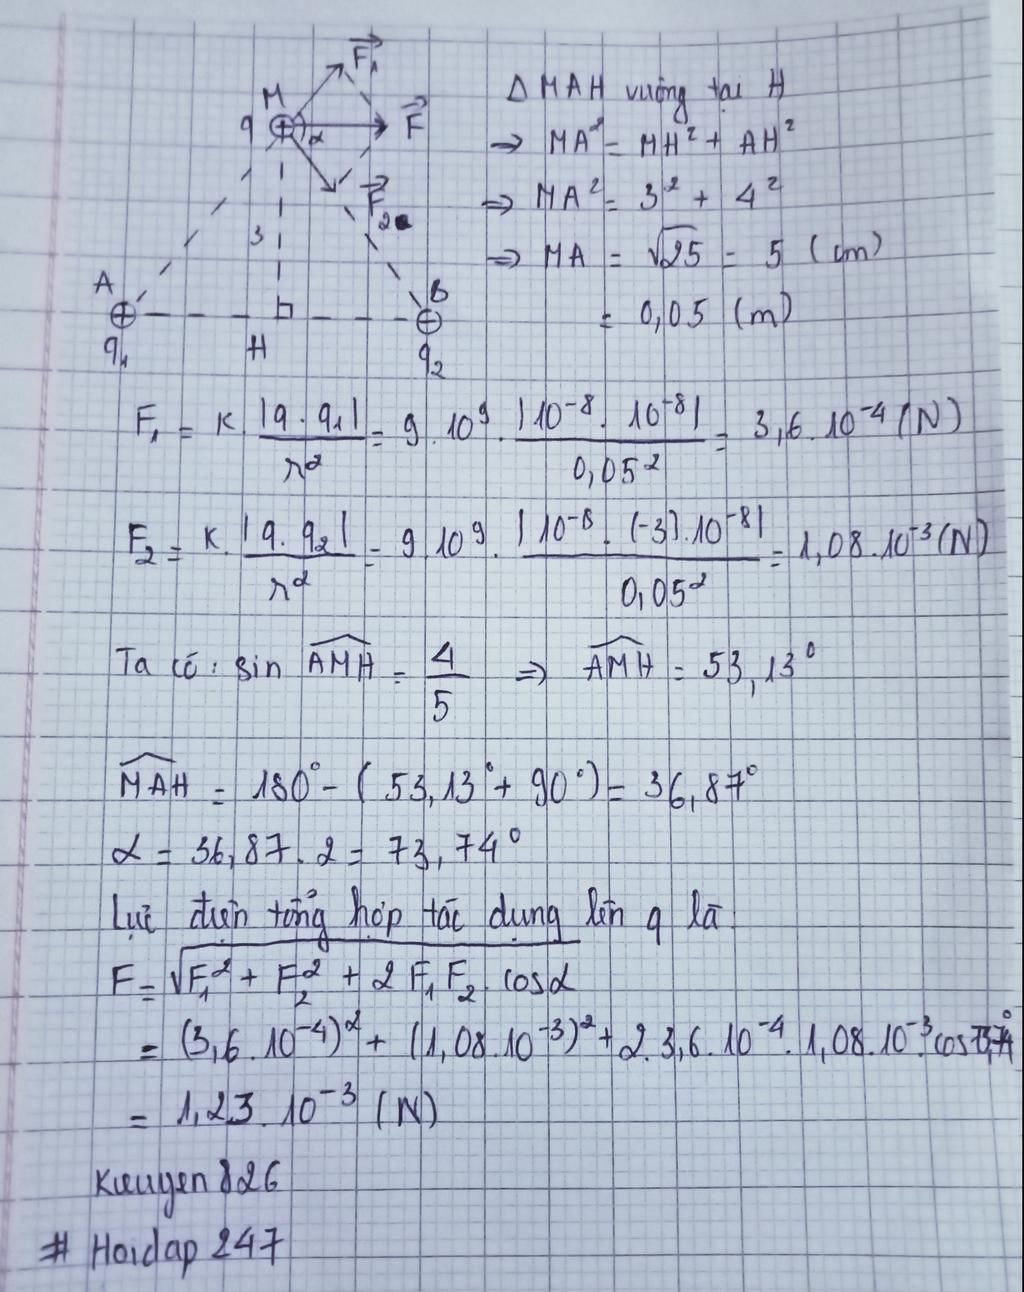 F₁
M
q ⊕ α F
F₂
3
A B
⊕ ⊖
q₁ H q₂
Δ MAH vuông tại H
→ MA² = MH² + AH²
⇒ MA² = 3² + 4²
⇒ MA = √25 = 5 (cm)
= 0,05 (m)
F₁ = K.|q.q₁|/r² = 9.10⁹.|10⁻⁸.10⁻⁸|/0,05² = 3,6.10⁻⁴ (N)
F₂ = K.|q.q₂|/r² = 9.10⁹.|10⁻⁸.(-3).10⁻⁸|/0,05² = 1,08.10⁻³ (N)
Ta có: sin AMH = 4/5 ⇒ AMH = 53,13°
MAH = 180° - (53,13° + 90°) = 36,87°
α = 36,87.2 = 73,74°
Lực điện tổng hợp tác dụng lên q là
F = √F₁² + F₂² + 2F₁F₂.cosα
= (3,6.10⁻⁴)² + (1,08.10⁻³)² + 2.3,6.10⁻⁴.1,08.10⁻³.cos73,74°
= 1,23.10⁻³ (N)
Kieuyen 826
# Hoidap 247